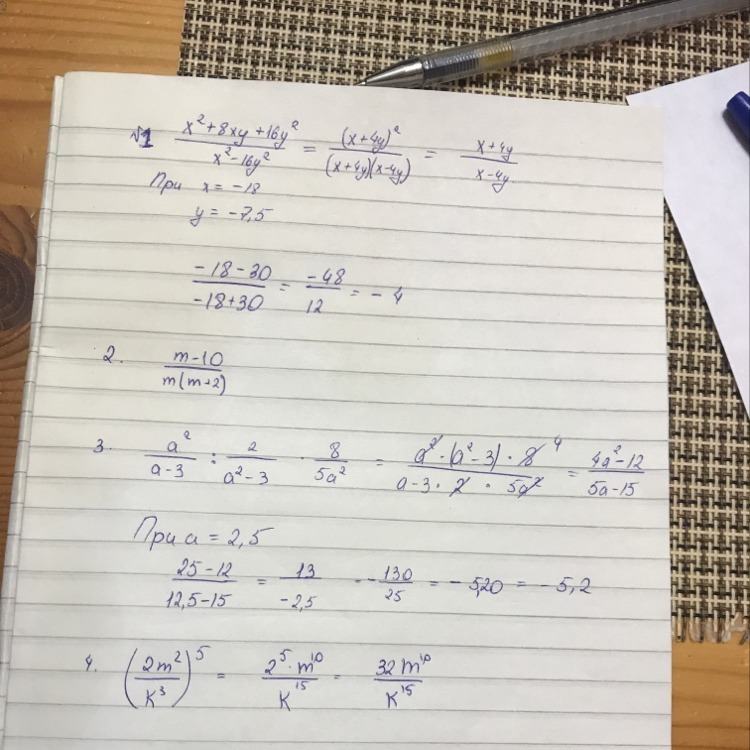 №1 (x²+8xy+16y²)/(x²-16y²) = (x+4y)²/((x+4y)(x-4y)) = (x+4y)/(x-4y)
При x = -18
y = -7,5
(-18-30)/(-18+30) = -48/12 = -4
2. (m-10)/(m(m+2))
3. a²/(a-3) : 2/(a²-3) · 8/(5a²) = (a²·(a²-3)·8 4)/(a-3·2·5a²) = (4a²-12)/(5a-15)
При a = 2,5
(25-12)/(12,5-15) = 13/(-2,5) = -130/25 = -5,20 = -5,2
4. (2m²/K³)⁵ = (2⁵·m¹⁰)/K¹⁵ = 32m¹⁰/K¹⁵